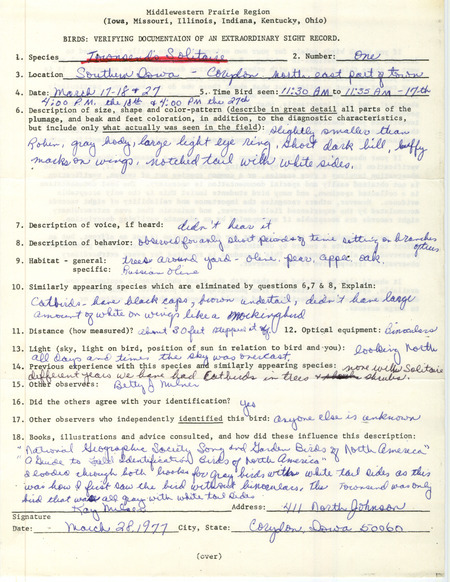 Middlewestern Prairie Region
(Iowa, Missouri, Illinois, Indiana, Kentucky, Ohio)
BIRDS: VERIFYING DOCUMENTAION OF AN EXTRAORDINARY SIGHT RECORD.
1. Species Townsend's Solitaire 2. Number: One
3. Location Southern Iowa - Corydon north east part of town
4. Date: March 17-18 & 27 5. Time Bird seen: 11:30 AM to 11:35 AM - 17th
4:00 P.M. the 18th & 4:00 PM the 27th
6. Description of size, shape and color-pattern (describe in great detail all parts of the
plumage, and beak and feet coloration, in addition, to the diagnostic characteristics,
but include only what actually was seen in the field): slightly smaller than
Robin, gray body, large light eye ring, short dark bill, buffy
marks on wings, notched tail with white sides.
7. Description of voice, if heard: didn't hear it
8. Description of behavior: observed for only short periods of time sitting on branches
of trees
9. Habitat - general: trees around yard - olive, pear, apple, oak.
specific: Russian Olive
10. Similarly appearing species which are eliminated by questions 6,7 & 8, Explain:
Catbirds - have black caps, brown undertail, didn't have large
amount of white on wings like a Mockingbird
11. Distance (how measured)? about 30 feet stepped it off 12. Optical equipment: binoculars
13. Light (sky, light on bird, position of sun in relation to bird and you): looking North
all days and times the sky was overcast.
14. Previous experience with this species and similarly appearing species: none with Solitaire
different years we have had Catbirds in trees & shrubs.
15. Other observers: Betty J Milner
16. Did the others agree with your identification? yes
17. Other observers who independently identified this bird: anyone else is unknown
18. Books, illustrations and advice consulted, and how did these influence this description:
"National Geographic Society Song and Garden Birds of North America"
"A Guide to Field Identification Birds of North America"
I looked through both books for gray birds with white tail sides as this
was how I first saw the bird without binoculars, the Townsend was only
bird that was all gray with white tail sides.
Ray Milner Address: 411 North Johnson
Signature
Date: March 28, 1977 City, State: Corydon, Iowa 50060
(over)